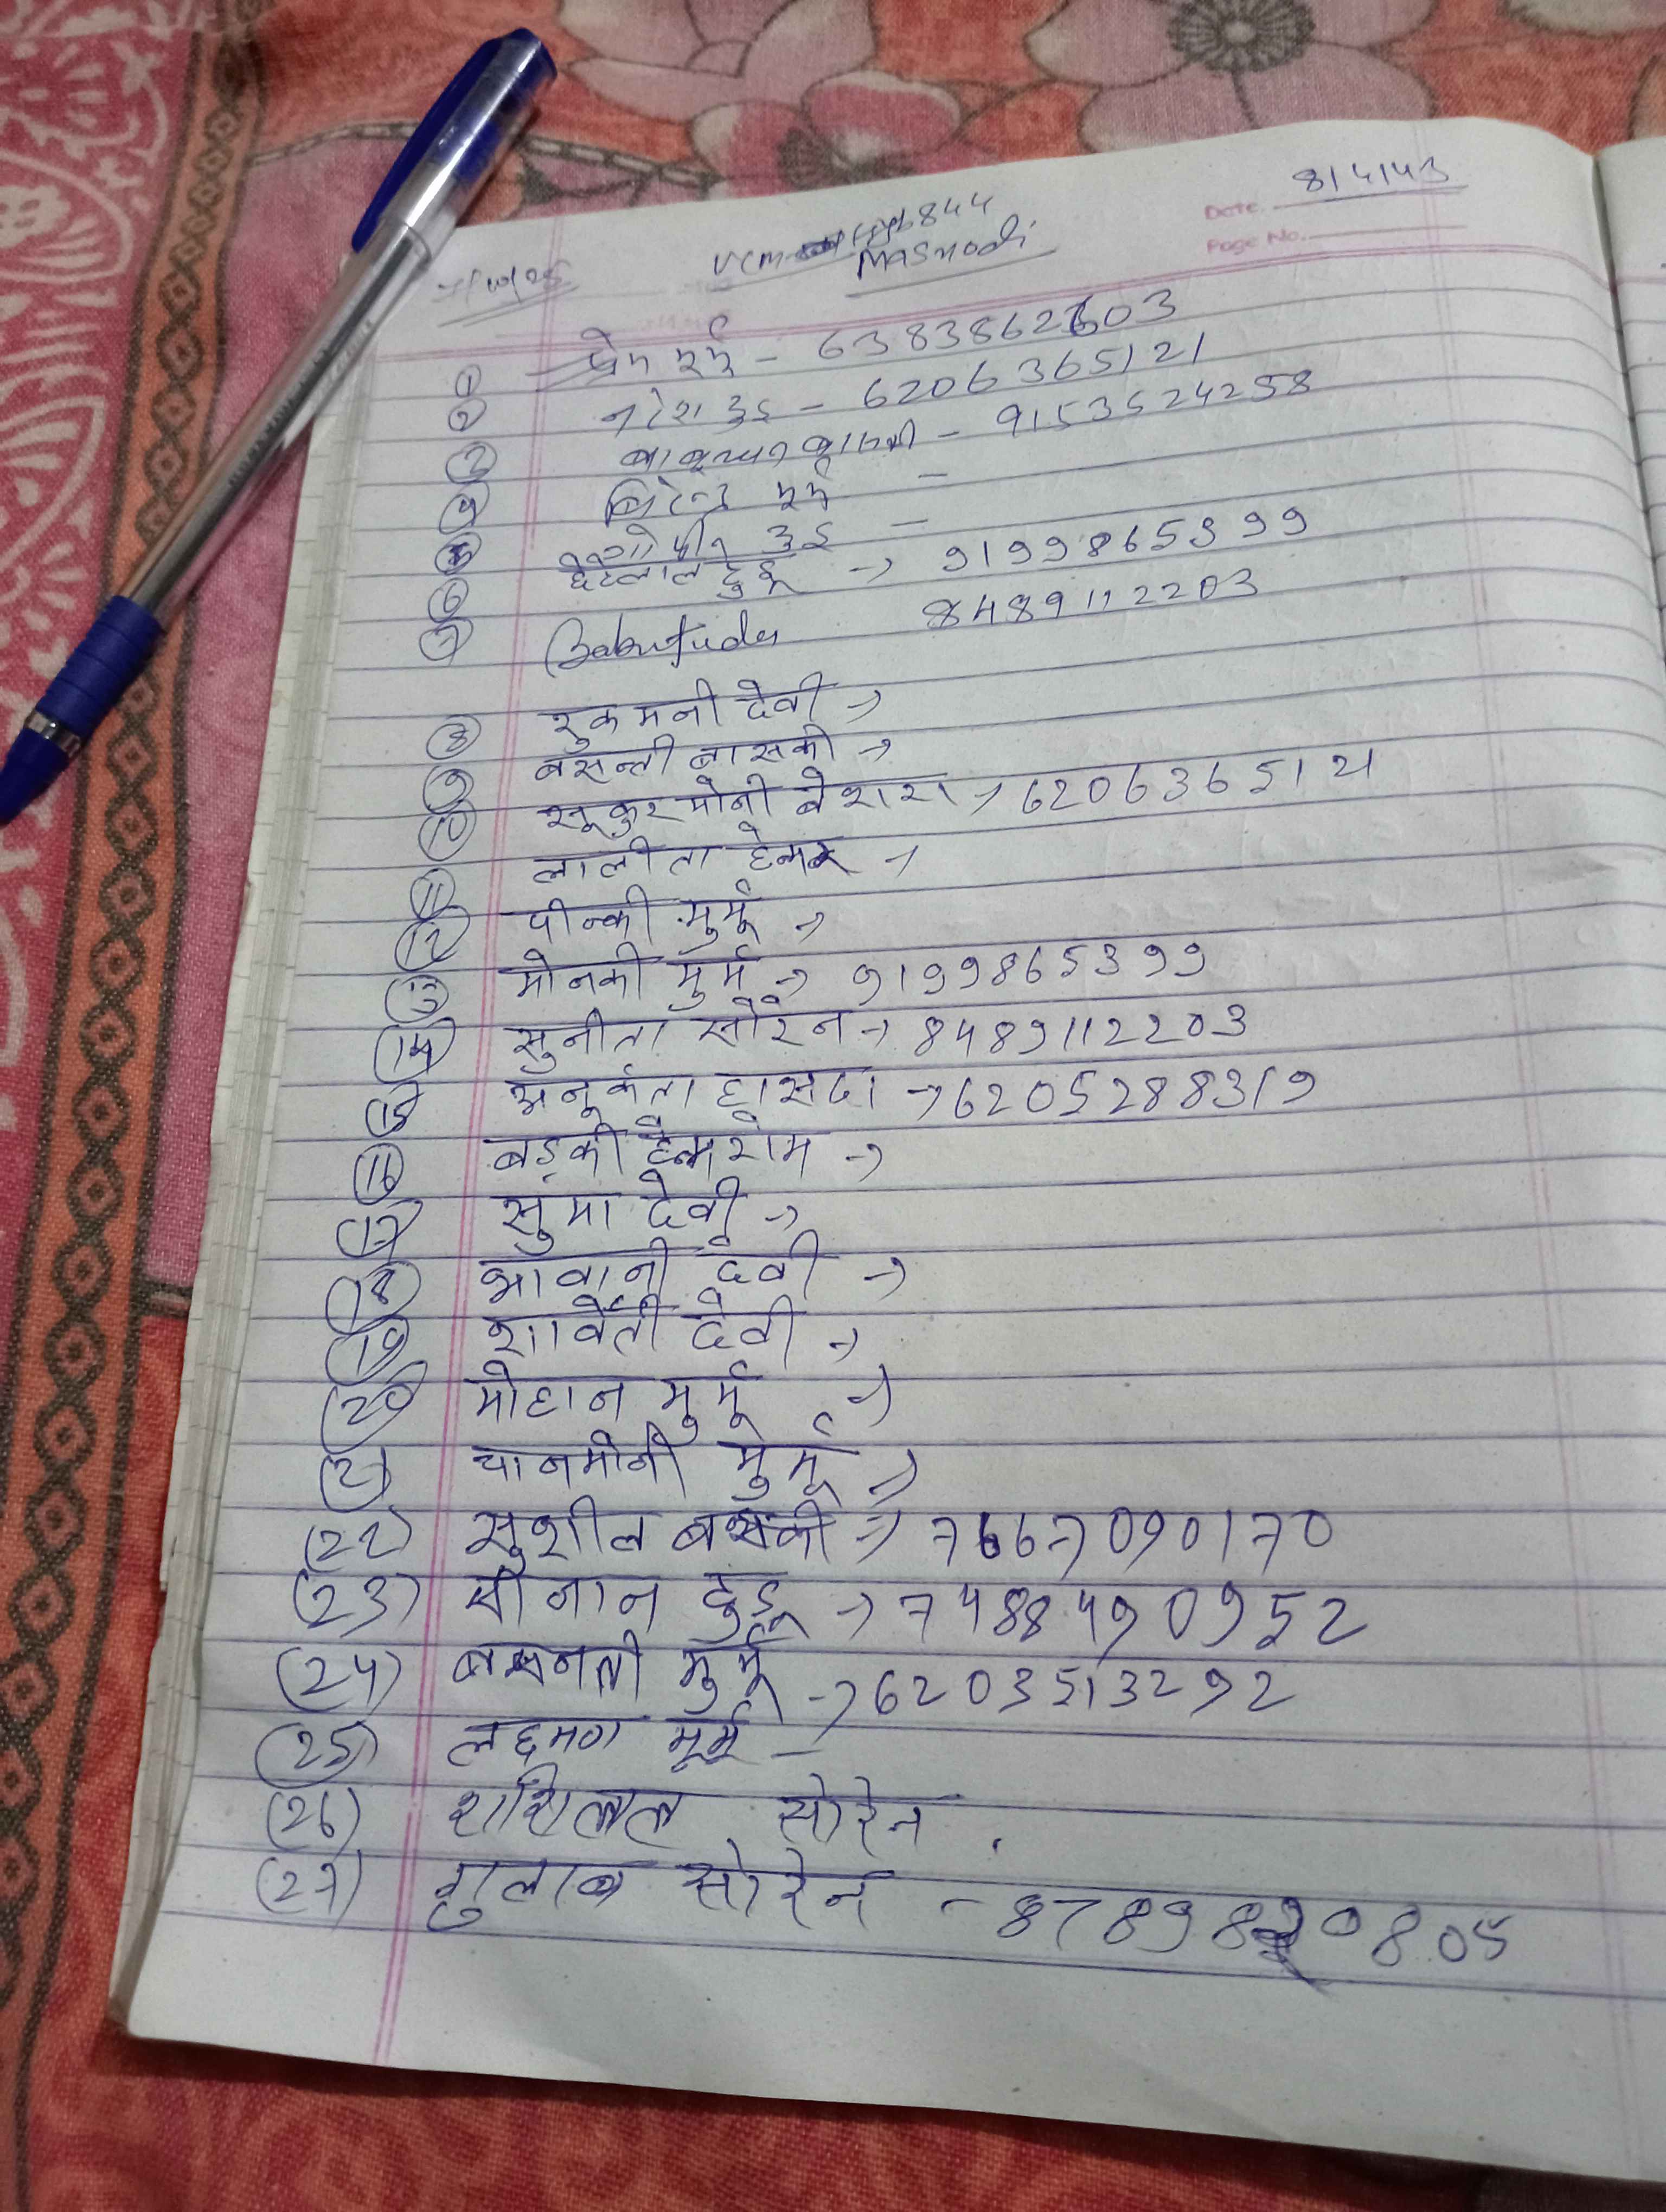 Date. 8/4/43
Page No.
7/10/25
VCM 844
Masnodi
① प्रेम मुर्मू - 6383862603
② नरेश टुडू - 6206365121
③ - 9153524258
④ मुर्मू -
⑤ टुडू -
⑥ छोटेलाल टुडू → 9199865399
⑦ Babu tudu 8489112203
⑧ रुकमनी देवी →
⑨ बसन्ती बासकी →
⑩ सुकुरमोनी बेसरा → 6206365121
⑪ लालीता हेम्ब्रम →
⑫ पीन्की मुर्मू →
⑬ मोनकी मुर्मू → 9199865399
⑭ सुनीता सोरेन → 8489112203
⑮ हासदा → 6205288319
⑯ बड़की हेम्बरोम →
⑰ सुमा देवी →
⑱ भावानी देवी →
⑲ देवी →
⑳ मोहान मुर्मू →
(21) चानमोनी मुर्मू →
(22) सुशील बासकी → 7667090170
(23) सोनान टुडू → 7488490952
(24) बासनती मुर्मू → 6203513292
(25) लक्ष्मण मुर्मू -
(26) शशिलाल सोरेन
(27) गुलाब सोरेन - 8789820805